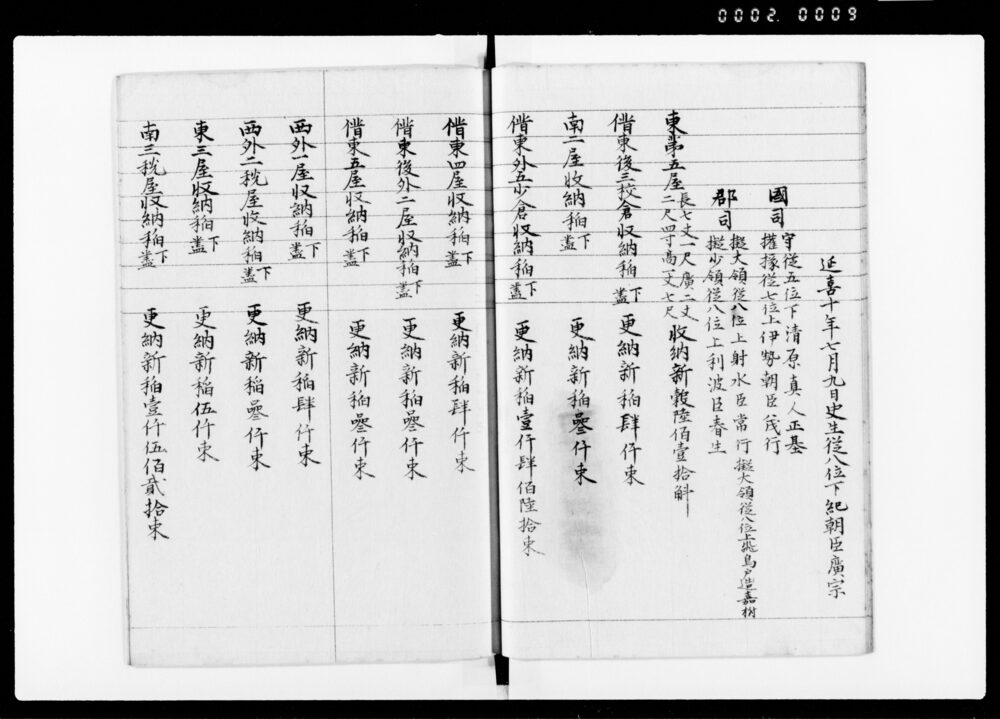 0002.0009
延喜十年七月九日史生從八位下紀朝臣廣宗
國司
守從五位下清原真人正基
權掾從七位上伊勢朝臣茂行
郡司
擬大領從八位上射水臣常行 擬大領從八位上飛鳥戸造嘉樹
擬少領從八位上利波臣春生
東第五屋 長七丈一尺廣二丈
二尺四寸高一丈七尺 收納新穀陸佰壹拾斛
偕東後三校倉收納稲下盖 更納新稲肆仟束
南二屋收納稲下盖 更納新稲叄仟束
偕東外五少倉收納稲下盖 更納新稲壹仟肆佰陸拾束
偕東四屋收納稲下盖 更納新稲肆仟束
偕東後外二屋收納稲下盖 更納新稲叄仟束
偕東五屋收納稲下盖 更納新稲叄仟束
西外一屋收納稲下盖 更納新稲肆仟束
西外二税屋收納稲下盖 更納新稲叄仟束
東三屋收納稲下盖 更納新稲伍仟束
南三税屋收納稲下盖 更納新稲壹仟伍佰貳拾束